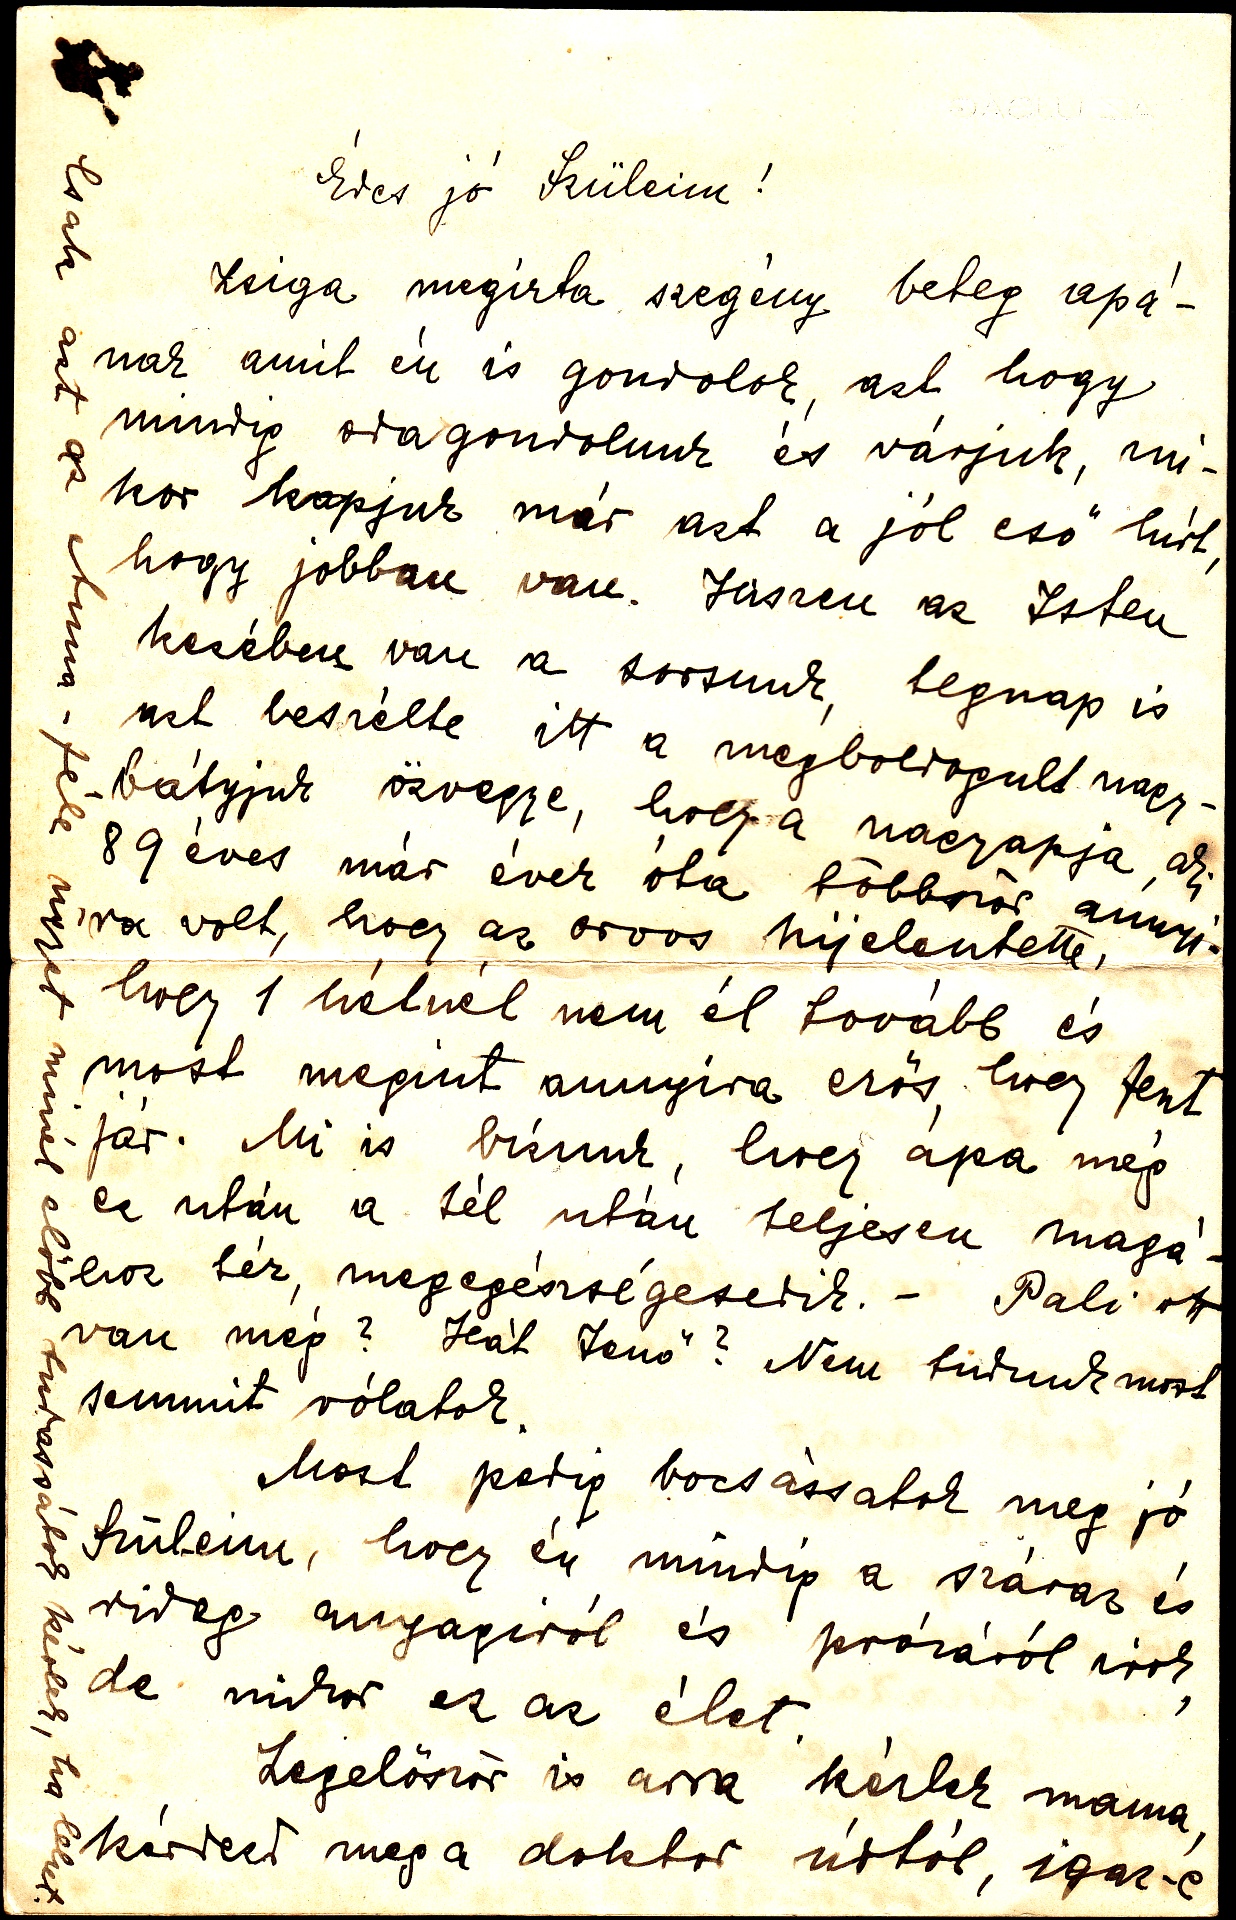 Édes jó Szüleim!
Zsiga megírta szegény beteg apá-
nak amit én is gondolok, azt hogy
mindig oda gondolunk és várjuk, mi-
kor kapjuk már azt a jól eső hírt,
hogy jobban van. Hiszen az Isten
kezében van a sorsunk, tegnap is
azt beszélte itt a megboldogult nagy-
bátyjuk özvegye, hogy a nagyapja, aki
89 éves már évek óta többször annyi-
ra volt, hogy az orvos kijelentette,
hogy 1 hétnél nem él tovább és
most megint annyira erős, hogy fent
jár. Mi is bízunk, hogy ápa még
ez után a tél után teljesen magá-
hoz tér, megegészségesedik. - Pali ott
van még? Hát Jenő? Nem tudunk most
semmit rólatok.
Most pedig bocsássatok meg jó
Szüleim, hogy én mindig a száraz és
rideg anyagiról és prózáról írok,
de mikor ez az élet.
Legelőször is arra kérlek mama,
kérdezd meg a doktor úrtól, igaz-e
Csak azt az Anna-féle ügyet minél előbb tudassátok kérlek, ha lehet.